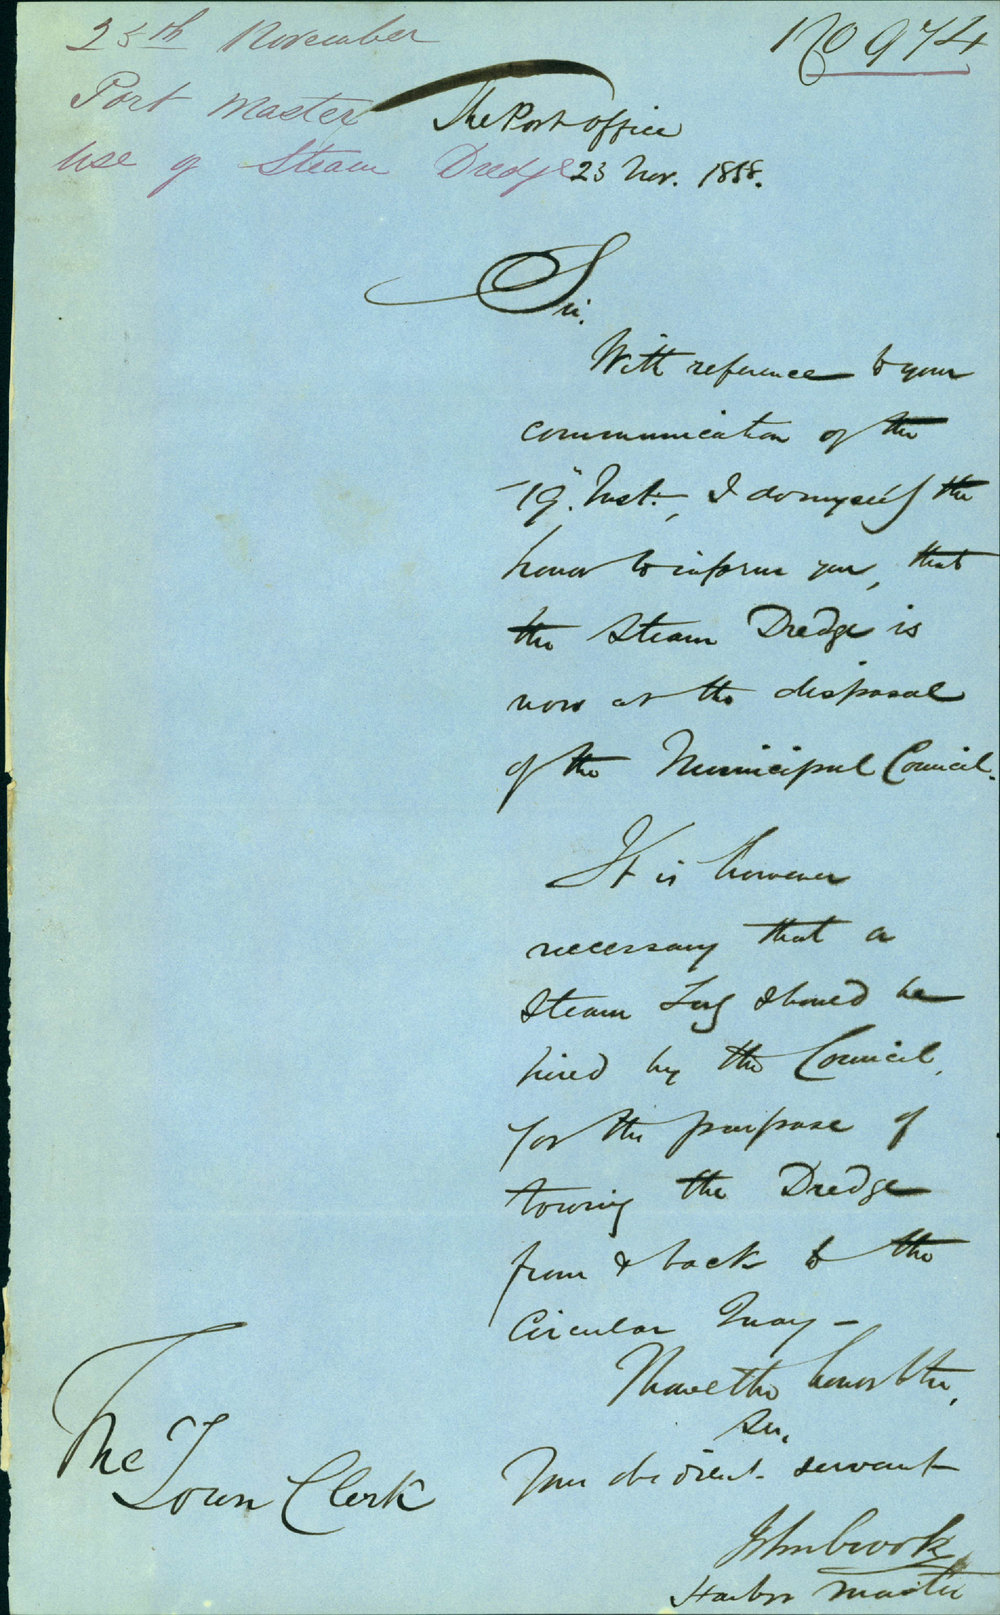 25th November
Port Master
use of Steam Dredge
No 974
The Port office
23 Nov. 1858.
Sir.
With reference to your
communication of the
19". Inst:, I do myself the
honor to inform you, that
the Steam Dredge is
now at the disposal
of the Municipal Council.
It is however
necessary that a
Steam Tug should be
hired by the Council,
for the purpose of
towing the Dredge
from & back to the
Circular Quay –
I have the honor to be,
Sir,
Your obedient servant
John Crook
Harbor Master
The
Town Clerk